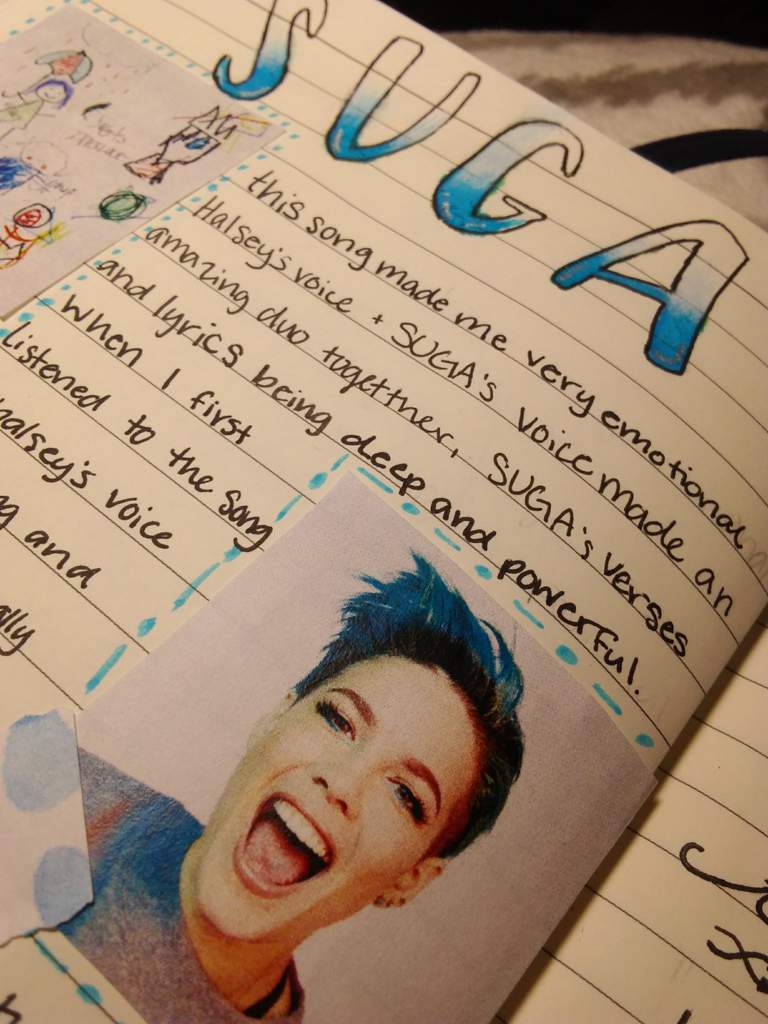 SUGA
this song made me very emotional
Halsey's voice + SUGA's voice made an
amazing duo togetther, SUGA's verses
and lyrics being deep and powerful.
When I first
listened to the song
halsey's voice
and